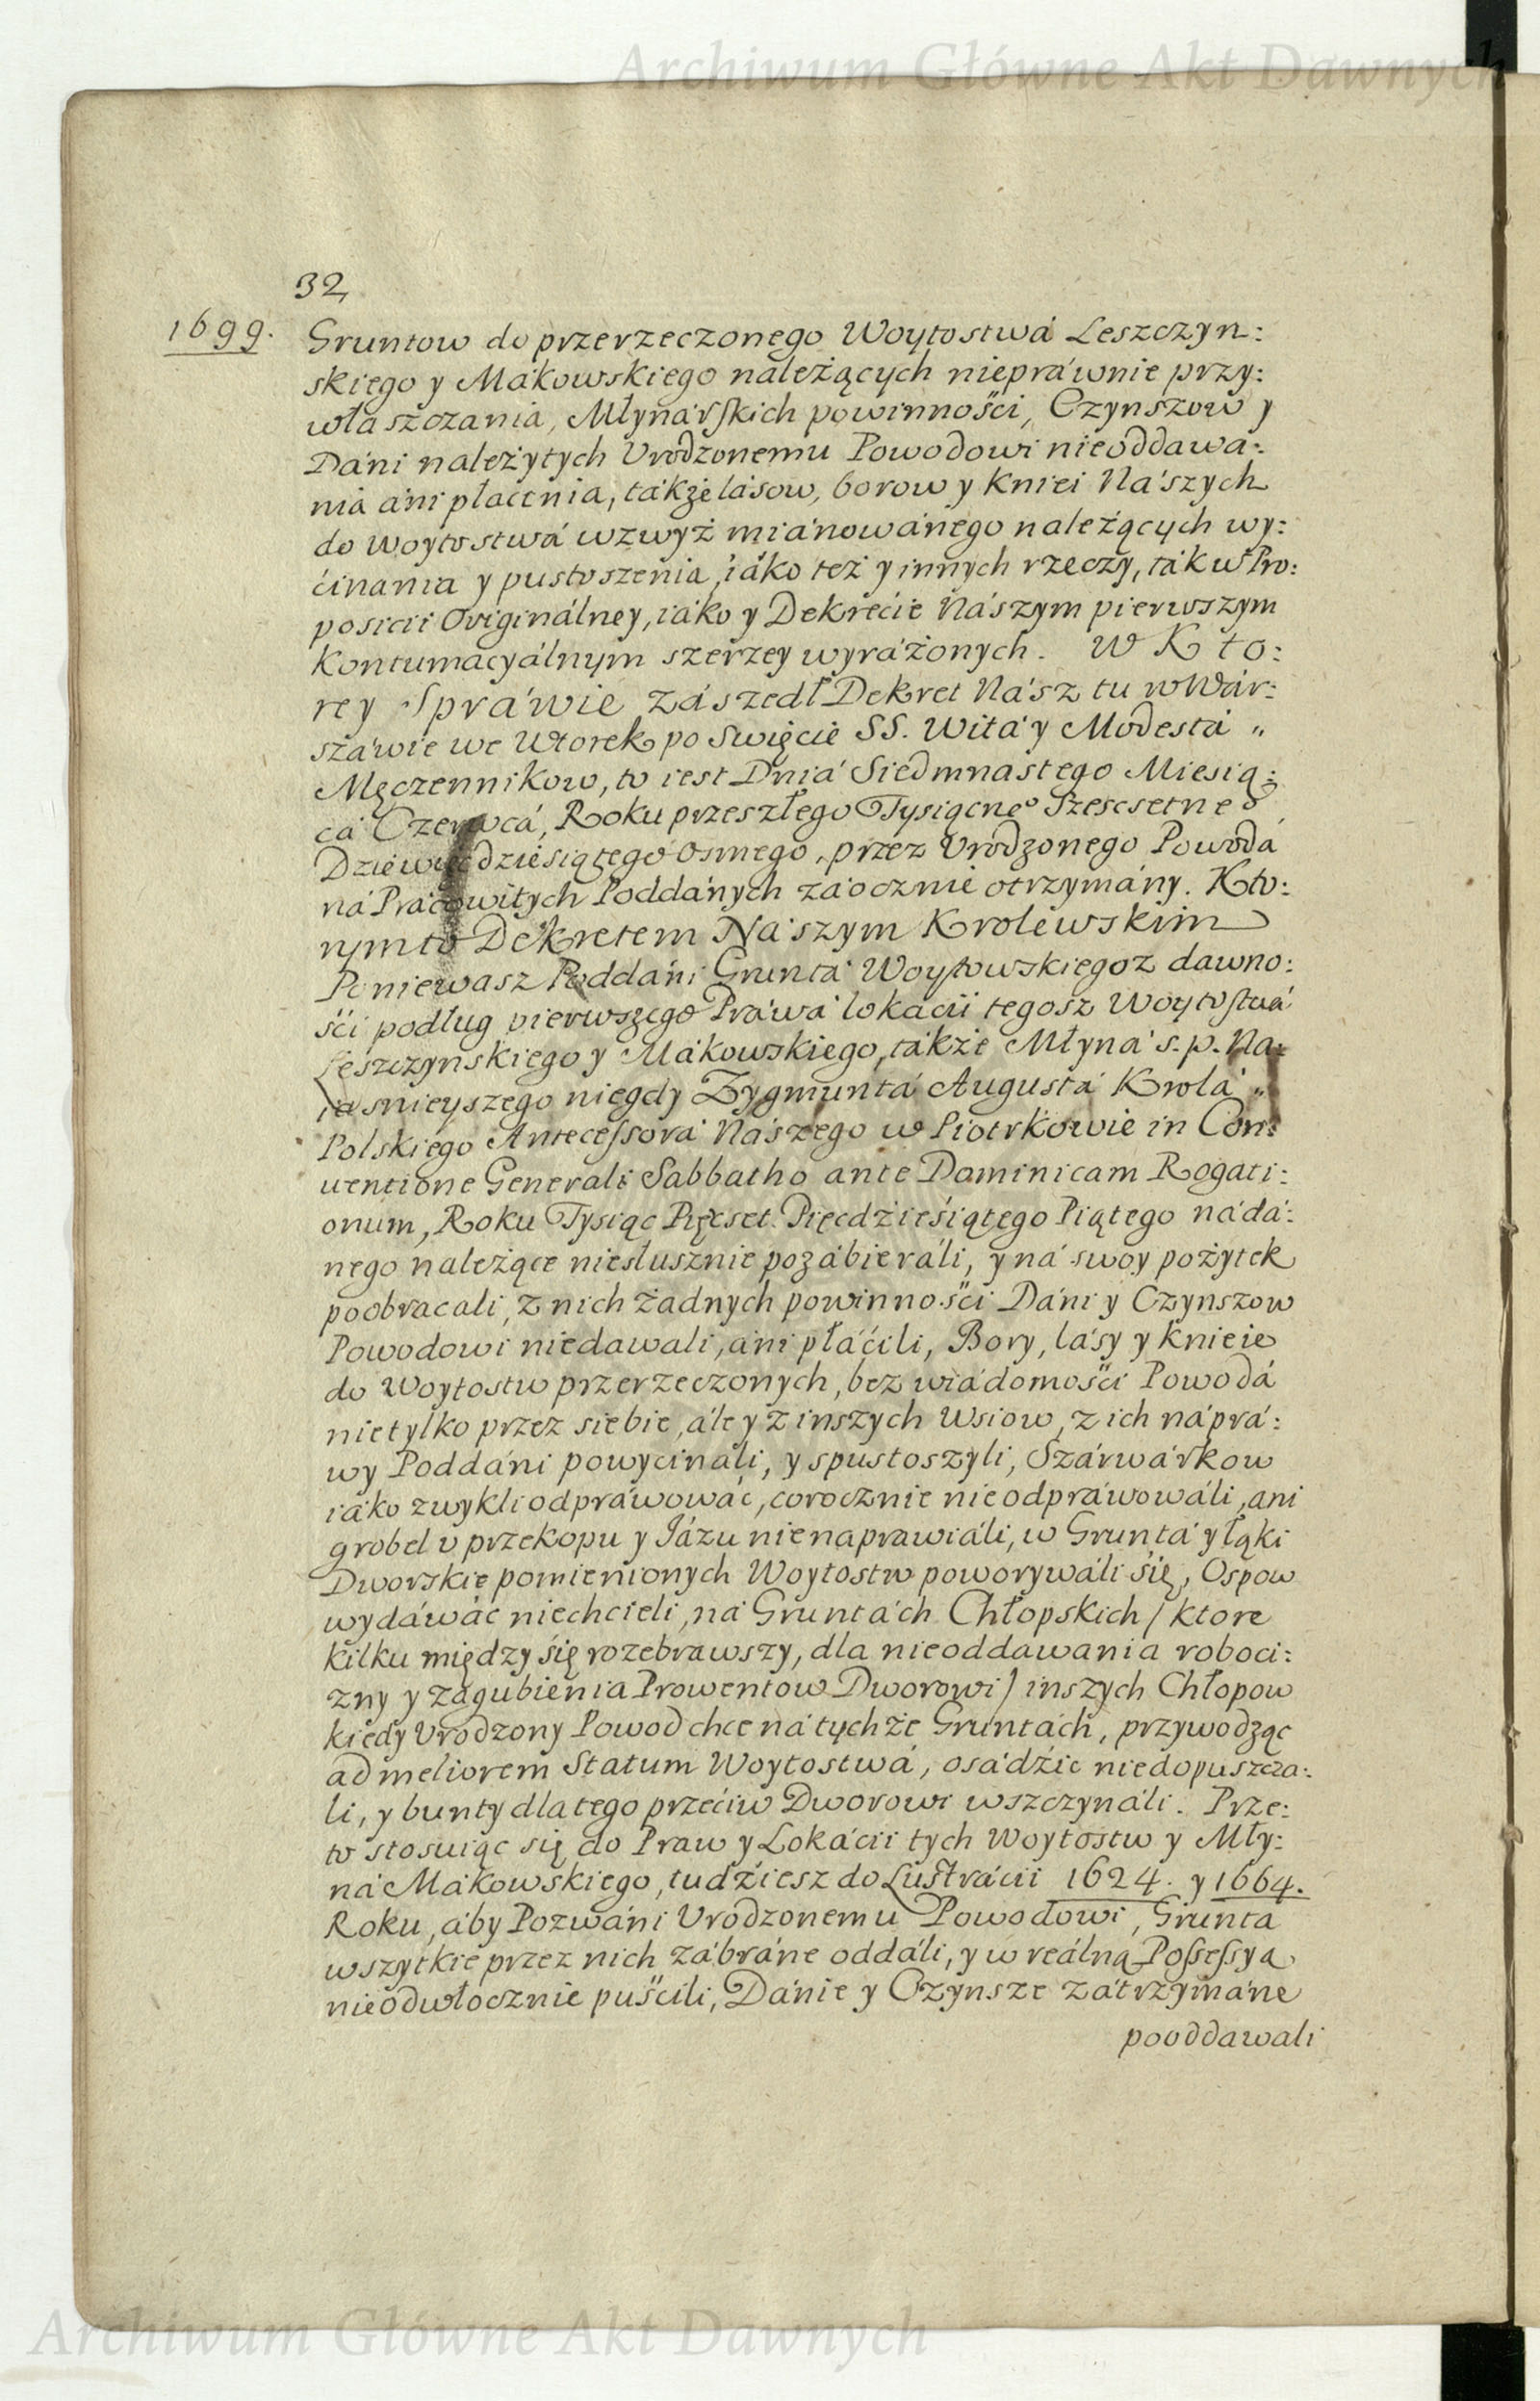 Archiwum Główne Akt Dawnych
32
1699.
Gruntow do przerzeczonego Woytostwá Leszczyn:
skiego y Mákowskiego należących nieprawnie przy:
właszczania, Młynarſkich powinności, Czynszow y
Dáni należytych Urodzonemu Powodowi nieoddawa:
nia áni płacenia, tákże lásow, borow y Kniei Nászych
do Woytostwá wzwyż miánowánego należących wy:
ćinania y pustoszenia, iáko też y innych rzeczy, ták w Pro:
posicii Originálney, iáko y Dekrećie Nászym pierwszym
Kontumácyálnym szerzey wyráżonych. W Kto:
rey Spráwie zászedł Dekret Nász tu w Wár:
száwie we Wtorek po Swięcie SS. Witá y Modestá „
Męczennikow, to iest Dniá Siedmnastego Miesią:
cá Czerwcá, Roku przeszłego Tysiącneº Szescsetneº
Dziewiędziesiątego osmego, przez Urodzonego Powodá
ná Pracowitych Poddánych záocznie otrzymány. Kto:
rym to Dekretem Nászym Krolewskim
Poniewasz Poddáni Gruntá Woytowskiego z dawno:
śći podług pierwszego Práwá lokácii tegosz Woytoſtwá
Leszczynskiego y Mákowskiego, tákże Młyná s. p. Na:
iasnieyszego niegdy Zygmuntá Augustá Krolá „
Polskiego Anteceſsorá Nászego w Piotrkowie in Con:
uentione Generali Sabbatho ante Dominicam Rogati:
onum, Roku Tysiąc Pięcset Pięcdźieśiątego Piątego nádá:
nego należące niesłusznie pozábieráli, y ná swoy pożytek
poobracali, z nich żadnych powinnośći Dáni y Czynszow
Powodowi niedawali, áni płáćili, Bory, lásy y knieie
do Woytostw przerzeczonych, bez wiádomośći Powodá
nietylko przez siebie, ále y z inszych Wsiow, z ich nápra:
wy Poddáni powycináli, y spustoszyli, Szárwárkow
iáko zwykli odpráwowáć, corocznie nieodpráwowáli, ani
grobel u przekopu y Jázu nienaprawiáli, w Gruntá y łąki
Dworskie pomienionych Woytostw poworywáli się, Ospow
wydáwác niechcieli, ná Gruntách Chłopskich / ktore
kilku między się rozebrawszy, dla nieoddawania roboci:
zny y zágubienia Prowentow Dworowi / inszych Chłopow
kiedy Urodzony Powod chce ná tychże Gruntách, przywodząc
ad meliorem Statum Woytostwá, osádźic niedopuszcza:
li, y bunty dla tego przećiw Dworowi wszczynáli. Prze:
to stosuiąc się do Praw y Lokácii tych Woytostw y Mły:
ná Mákowskiego, tudźiesz do Lustrácii 1624. y 1664.
Roku, áby Pozwáni Urodzonemu Powodowi, Grunta
wszytkie przez nich zábráne oddáli, y w reálną Poſseſsyą
nieodwłocznie puśćili, Dánie y Czynsze zátrzymáne
pooddawali
Archiwum Główne Akt Dawnych